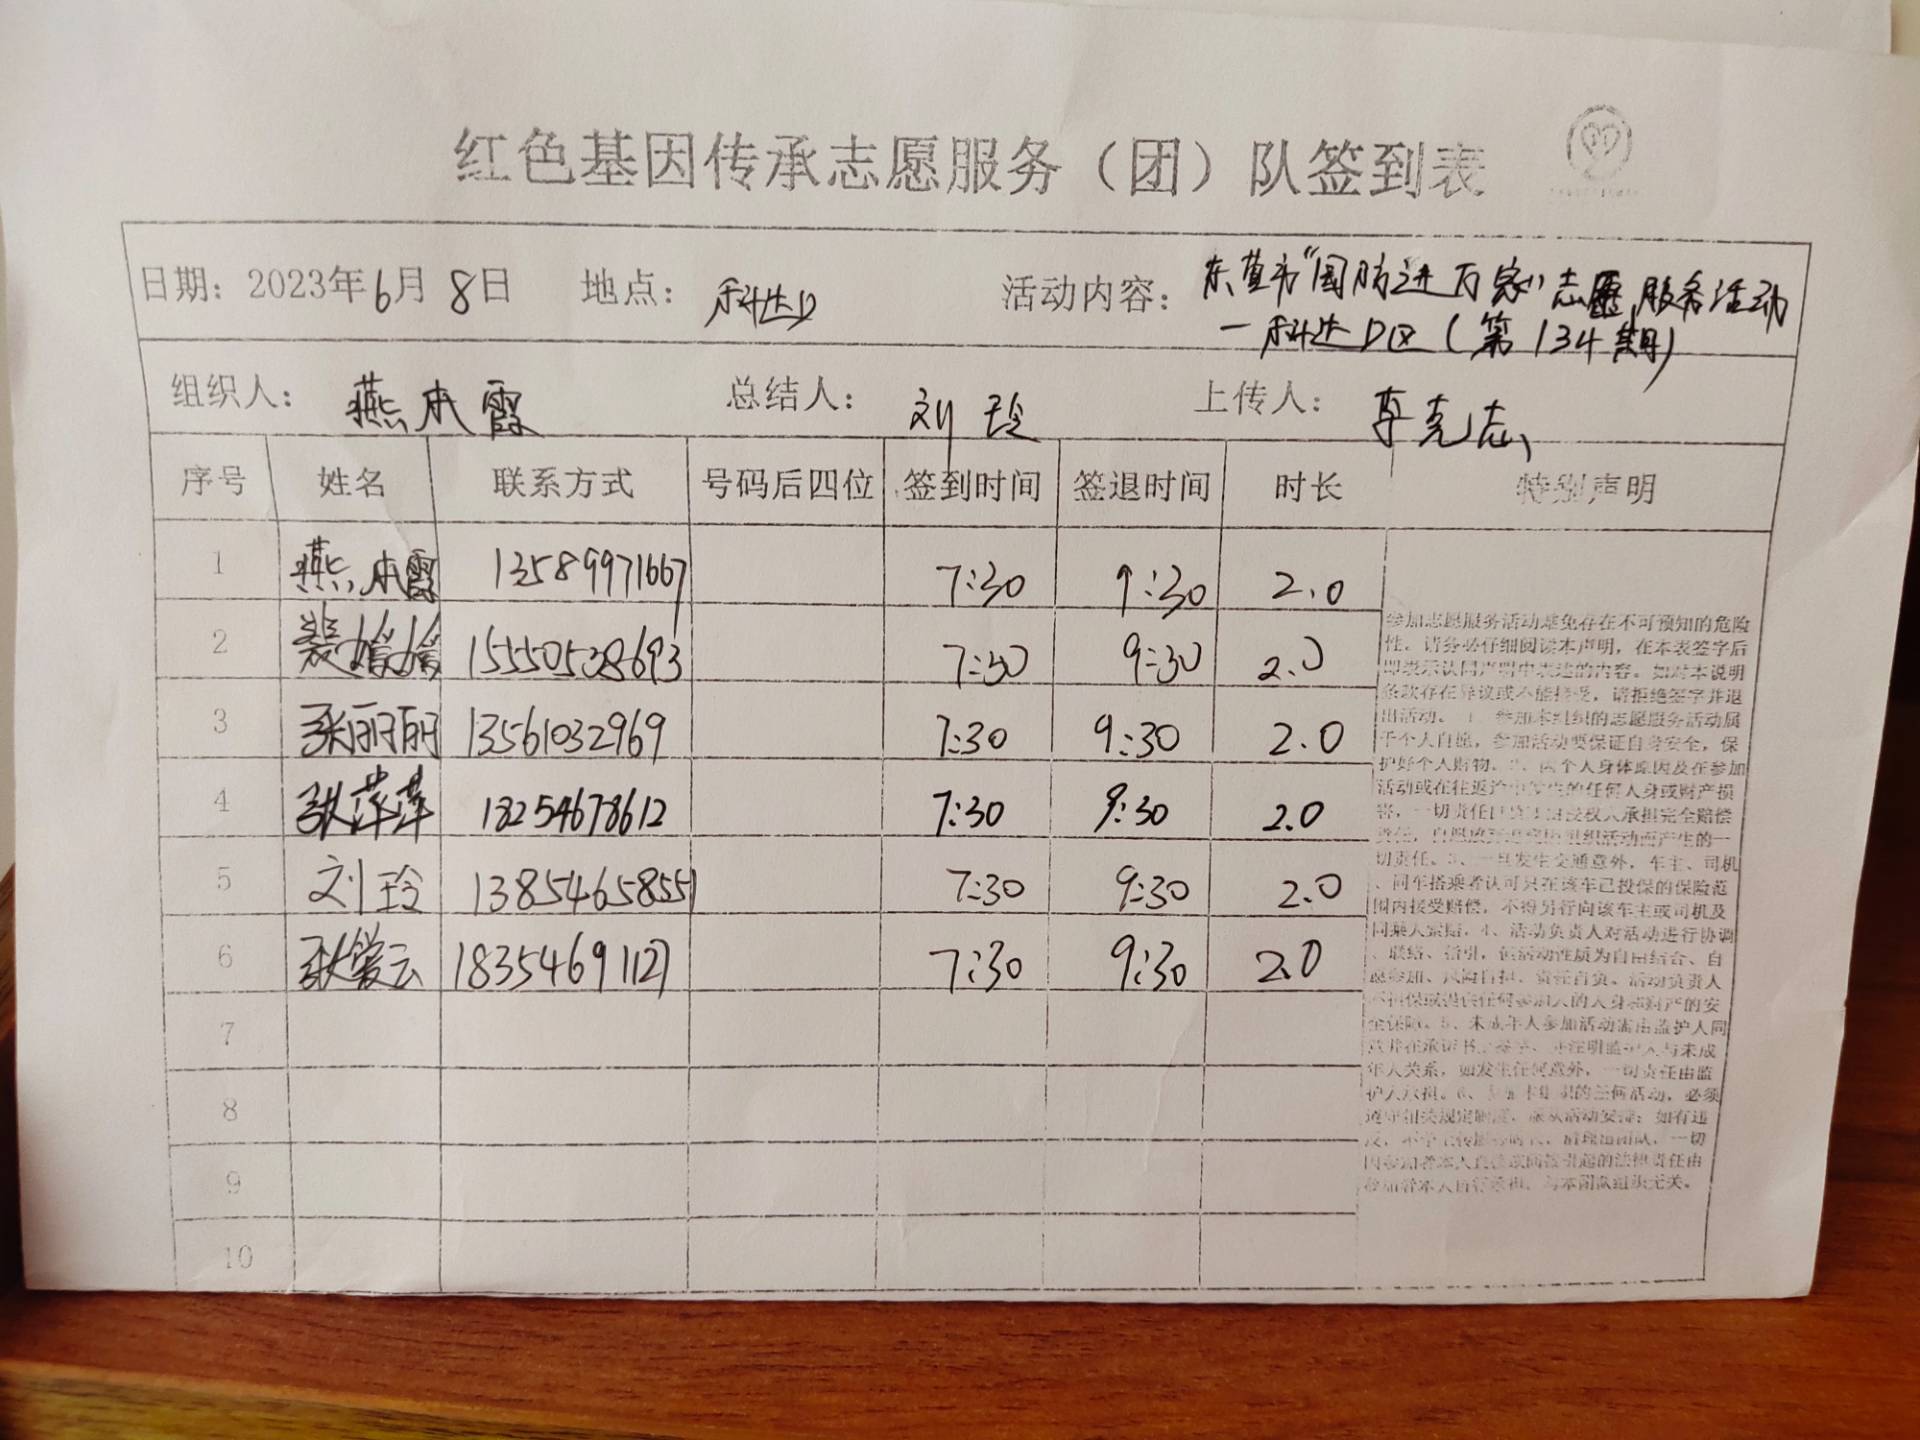 红色基因传承志愿服务（团）队签到表
日期：2023年6月8日 地点：科达D 活动内容：东营市“国防进万家”志愿服务活动
一科达D区（第134期）
组织人：燕本霞 总结人：刘玲 上传人：李克志
序号 姓名 联系方式 号码后四位 签到时间 签退时间 时长 特别声明
1 燕本霞 13589971667 7:30 9:30 2.0
2 裴媛媛 15550538693 7:30 9:30 2.0
3 张丽丽 13561032969 7:30 9:30 2.0
4 张萍萍 18254678612 7:30 9:30 2.0
5 刘玲 13854658551 7:30 9:30 2.0
6 张爱云 18354691127 7:30 9:30 2.0
7
8
9
10
参加志愿服务活动难免存在不可预知的危险
性。请务必仔细阅读本声明，在本表签字后
即表示认同声明中表述的内容。如对本说明
条款存在异议或不能接受，请拒绝签字并退
出活动。1、参加本组织的志愿服务活动属
于个人自愿，参加活动要保证自身安全，保
护好个人财物。2、因个人身体原因及在参加
活动或在往返途中发生的任何人身或财产损
害，一切责任 承担完全赔偿
责任，自愿放弃 组织活动而产生的一
切责任。3、一旦发生交通意外，车主、司机
、同车搭乘者认可只在该车已投保的保险范
围内接受赔偿，不得另行向该车主或司机及
同乘人索赔。4、活动负责人对活动进行协调
、联络、指引，但活动性质为自由结合、自
愿参加、风险自担、责任自负。活动负责人
不担保或提供任何参加人的人身和财产的安
全保障。5、未成年人参加活动需由监护人同
意并在承诺书上签字，并注明监护人与未成
年人关系，如发生任何意外，一切责任由监
护人承担。6、参加本组织的任何活动，必须
遵守相关规定制度，服从活动安排；如有违
反，不予上传服务时长，清理出团队，一切
因参加者本人直接或间接引起的法律责任由
参加者本人自行承担，与本团队组织无关。